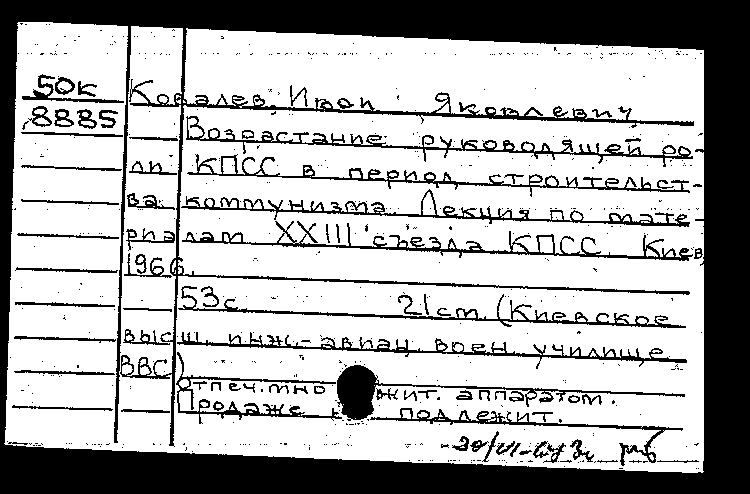 50к
8885
Ковалев, Иван Яковлевич
Возрастание руководящей ро-
ли КПСС в период строительст-
ва коммунизма. Лекция по мате-
риалам XXIII съезда КПСС. Киев,
1966.
53с. 21см. (Киевское
высш. инж.-авиац. воен. училище
ВВС)
Отпеч. аппаратом.
Продаже подлежит.